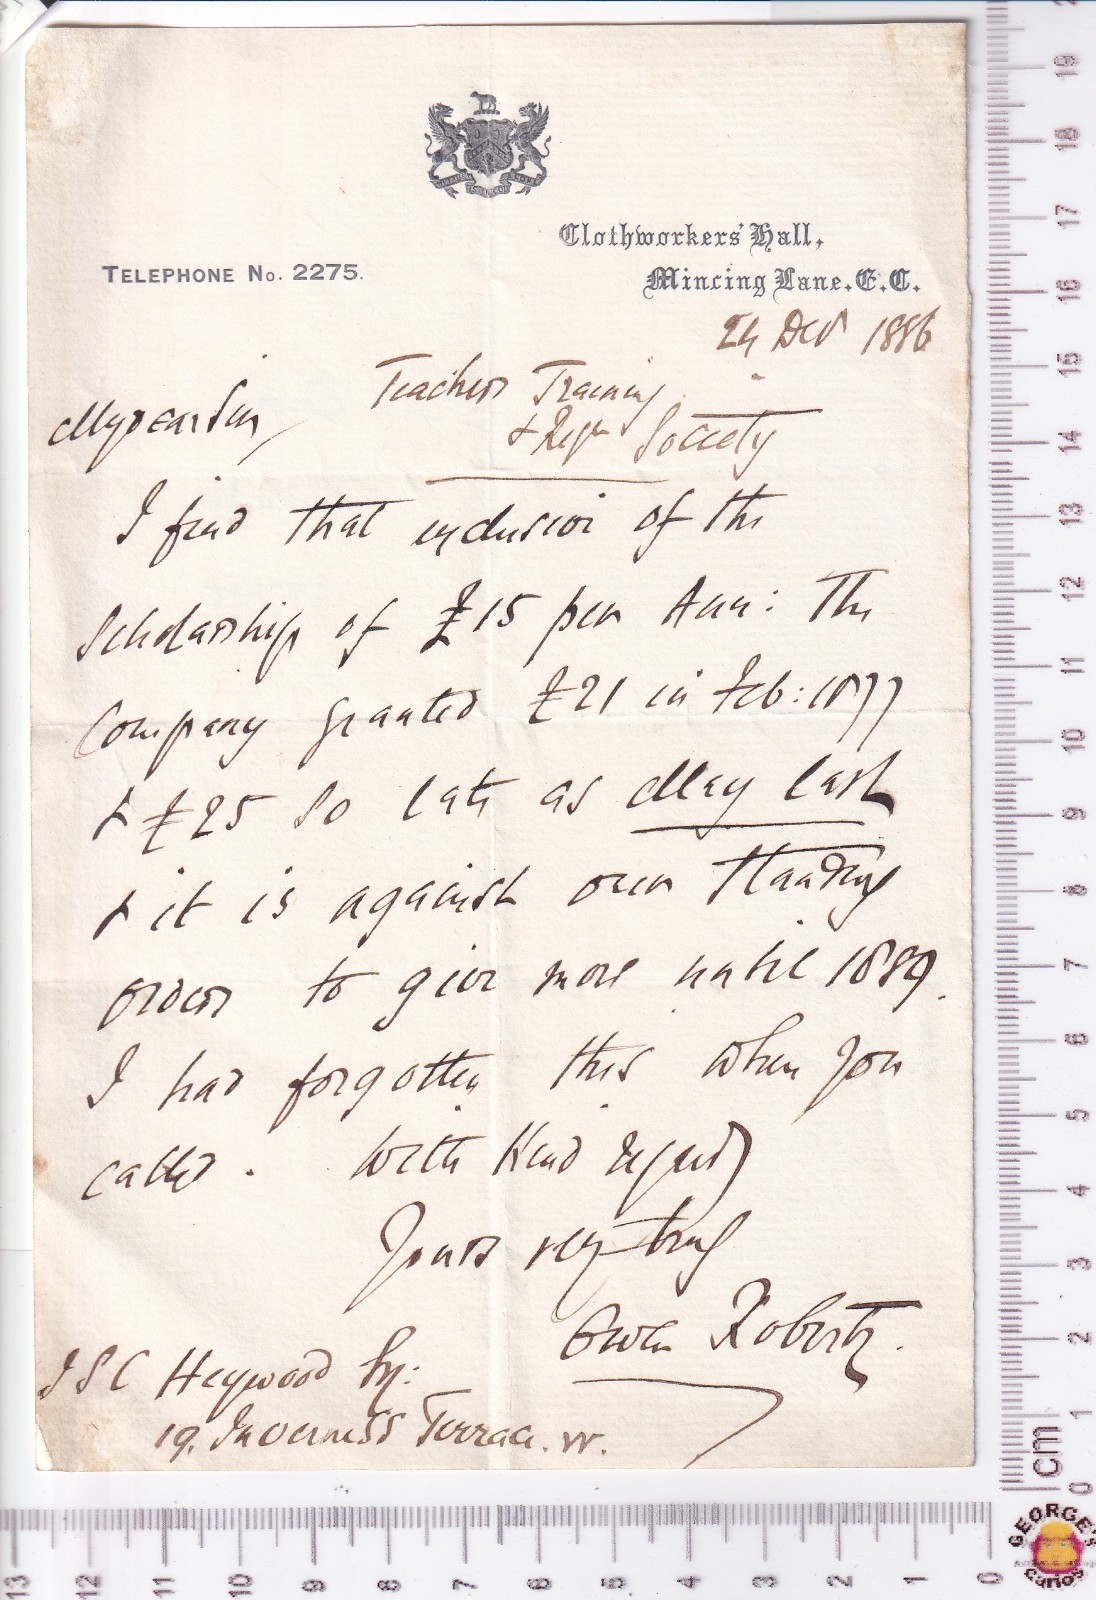 Clothworkers' Hall,
TELEPHONE No. 2275.
Mincing Lane. E.C.
24 Dec 1886
Teachers Training
& Regn Society
My dear Sir,
I find that inclusive of the
Scholarship of £15 per Ann: the
Company granted £21 in Feb: 1877
& £25 so late as May last
& it is against our standing
orders to give more until 1889.
I had forgotten this when you
called. With kind regards
Yours very truly
Owen Roberts.
Heywood Esq:
19. Inverness Terrace. W.
19
18
17
16
15
14
13
12
11
10
9
8
7
6
5
4
3
2
1
0
cm
13 12 11 10 9 8 7 6 5 4 3 2 1 0
GEORGE'S
curios